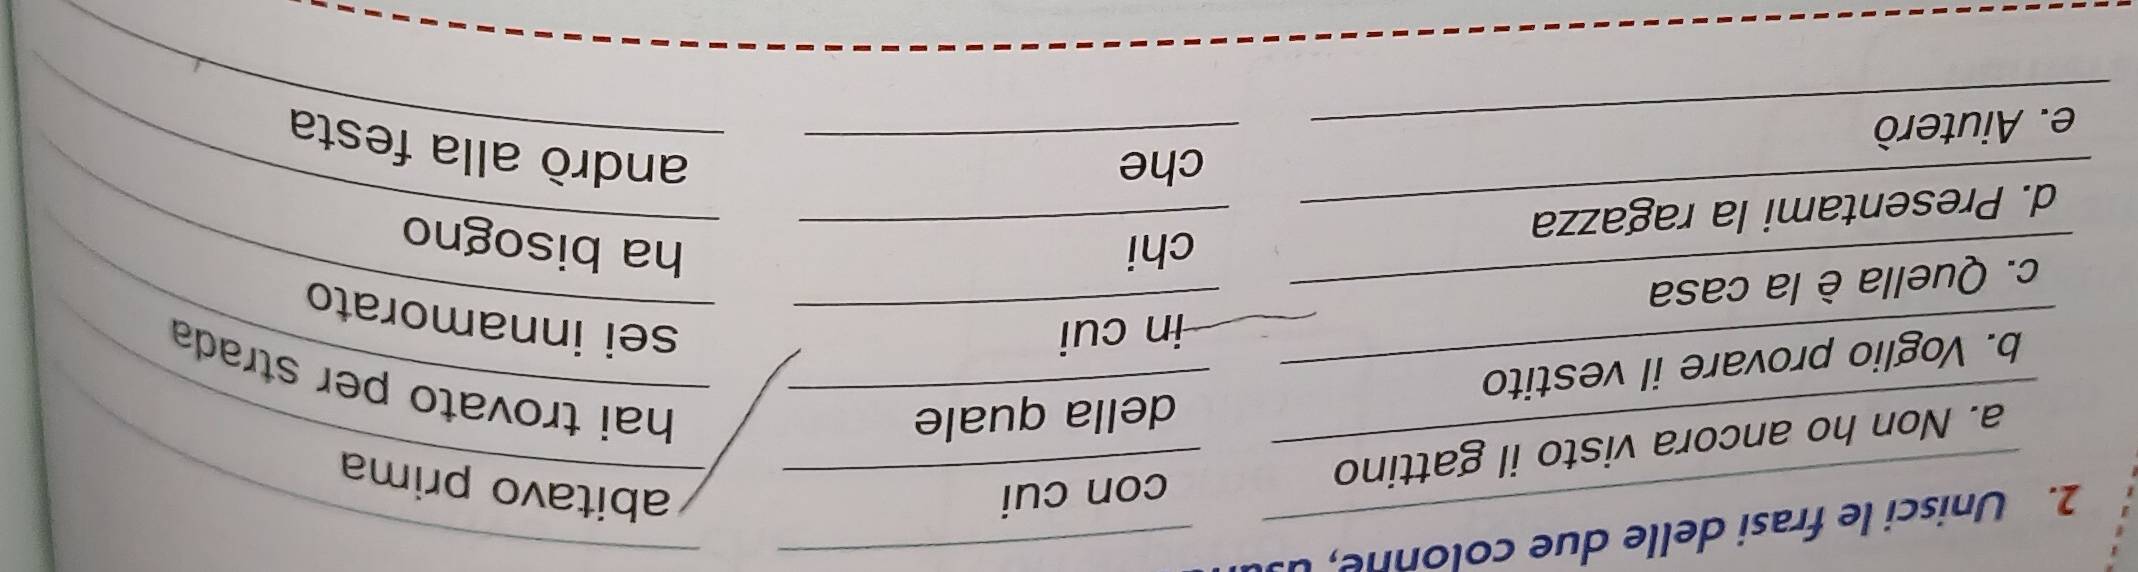 2. Unisci le frasi delle due colonne,
a. Non ho ancora visto il gattino con cui abitavo prima
b. Voglio provare il vestito della quale hai trovato per strada
c. Quella è la casa in cui sei innamorato
d. Presentami la ragazza chi ha bisogno
e. Aiuterò che andrò alla festa